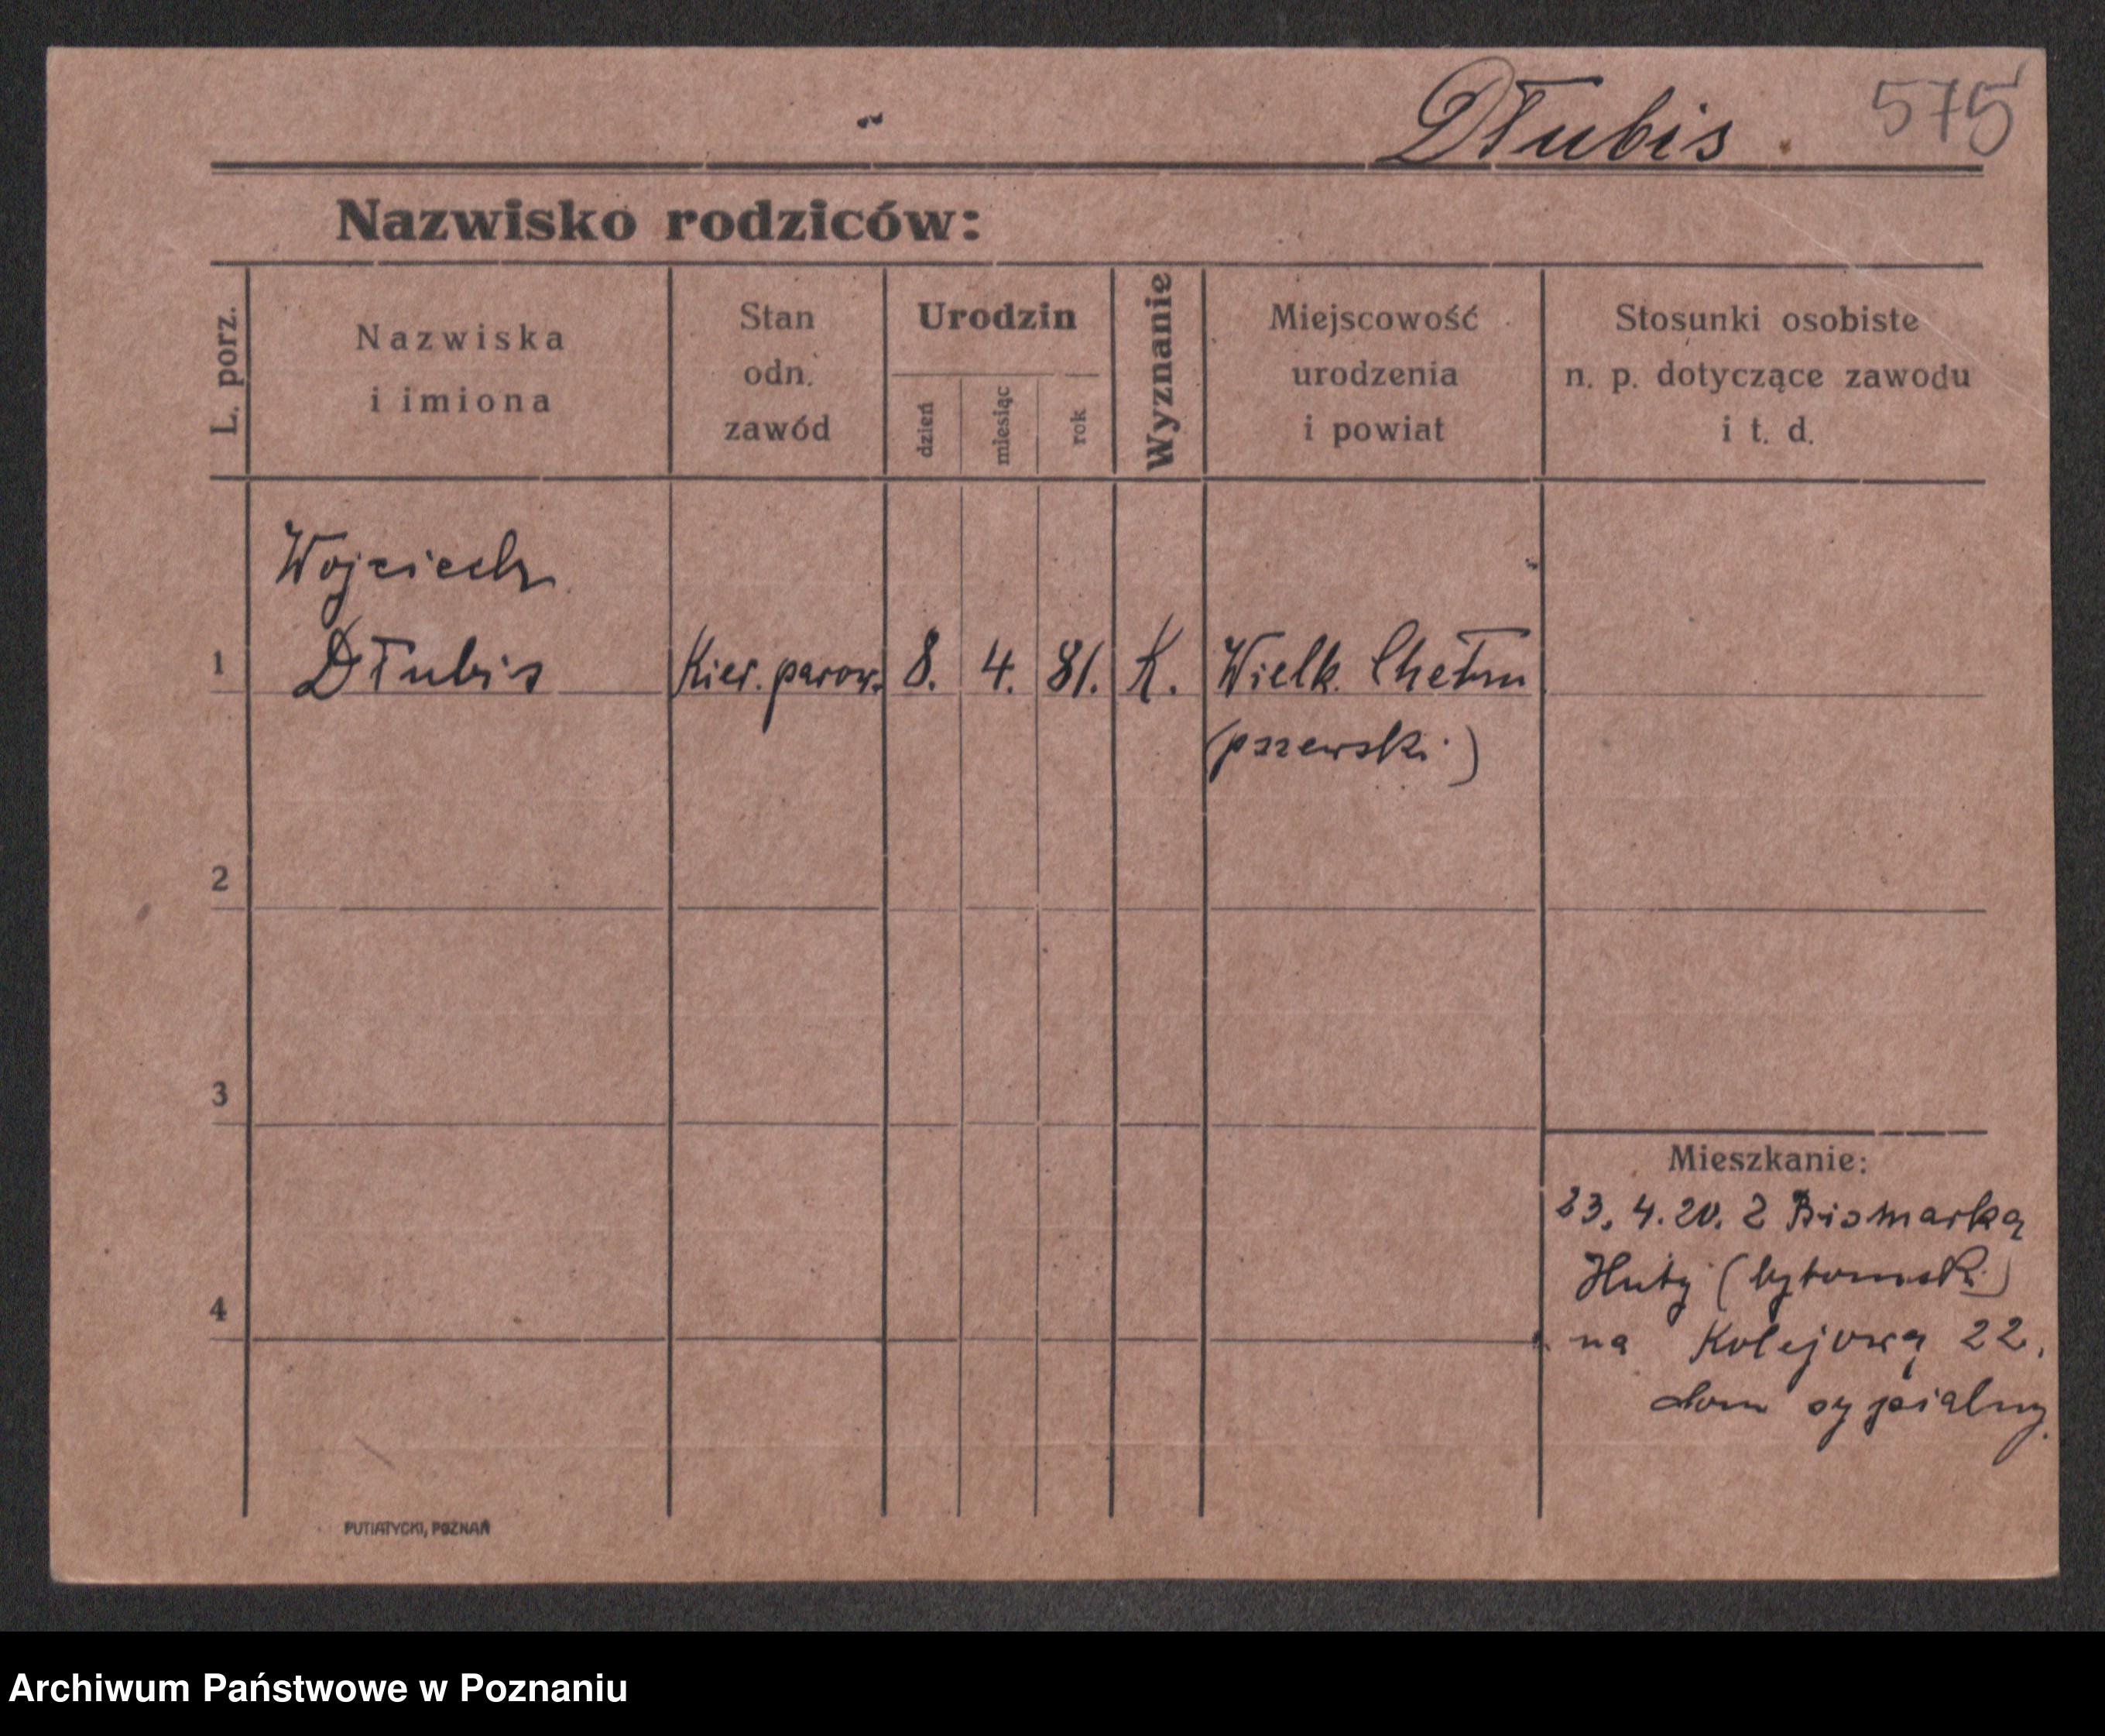 Dłubis. 575
Nazwisko rodziców:
L. porz.
Nazwiska
i imiona
Stan
odn.
zawód
Urodzin
dzień
miesiąc
rok
Wyznanie
Miejscowość
urodzenia
i powiat
Stosunki osobiste
n. p. dotyczące zawodu
i t. d.
Wojciech
1 Dłubis Kier. parow. 8. 4. 81. K. Wielk. Chełm
(pszewski)
2
3
4
Mieszkanie:
23. 4. 20. z Bismarka
Huty (bytomski)
na Kolejową 22.
dom sypialny.
PUTIATYCKI, POZNAŃ
Archiwum Państwowe w Poznaniu